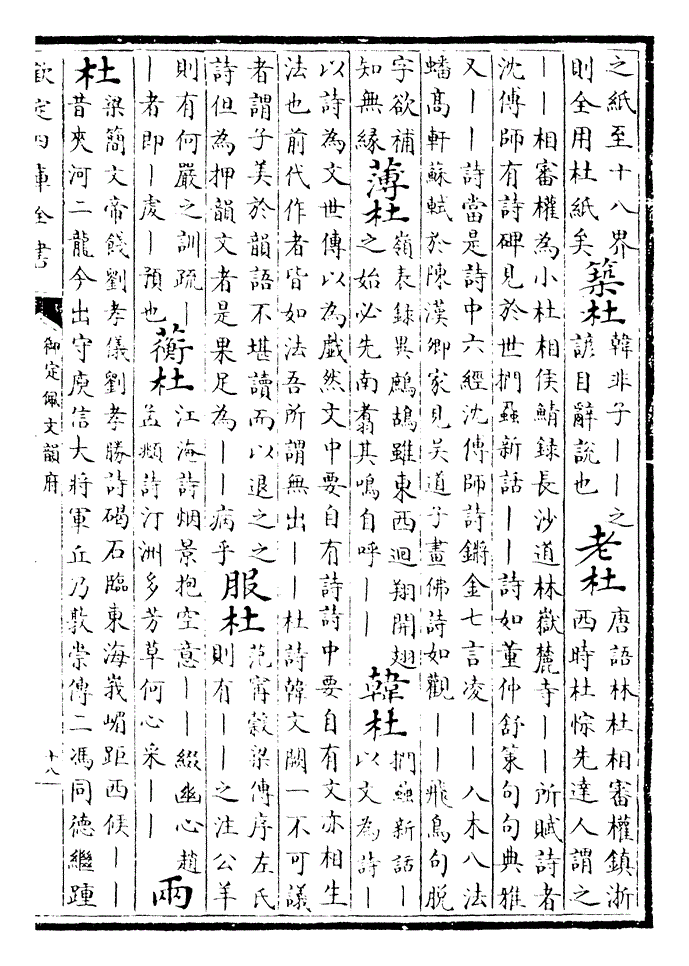 之紙至十八界
則全用杜紙矣
築杜
韓非子——之
諺目辭說也
老杜
唐語林杜相審權鎮浙
西時杜悰先達人謂之
——相審權為小杜相侯鯖錄長沙道林嶽麓寺——所賦詩者
沈傅師有詩碑見於世捫蝨新話——詩如董仲舒策句句典雅
又——詩當是詩中六經沈傅師詩鏘金七言凌——八木八法
蟠高軒蘇軾於陳漢卿家見吳道子畫佛詩如觀——飛鳥句脫
字欲補
知無緣
薄杜
嶺表錄異鷓鴣雖東西迴翔開翅
之始必先南翥其鳴自呼——
韓杜
捫蝨新話—
以文為詩—
以詩為文世傳以為戲然文中要自有詩詩中要自有文亦相生
法也前代作者皆如法吾所謂無出——杜詩韓文闕一不可議
者謂子美於韻語不堪讀而以退之之
詩但為押韻文者是果足為——病乎
服杜
范甯穀梁傳序左氏
則有——之注公羊
則有何嚴之訓疏—
—者即—虔—預也
蘅杜
江淹詩烟景抱空意——綴幽心趙
孟頫詩汀洲多芳草何心采——
兩
杜
梁簡文帝餞劉孝儀劉孝勝詩碣石臨東海峩嵋距西候——
昔夾河二龍今出守庾信大將軍丘乃敦崇傳二馮同德繼踵
欽定四庫全書
御定佩文韻府
十八